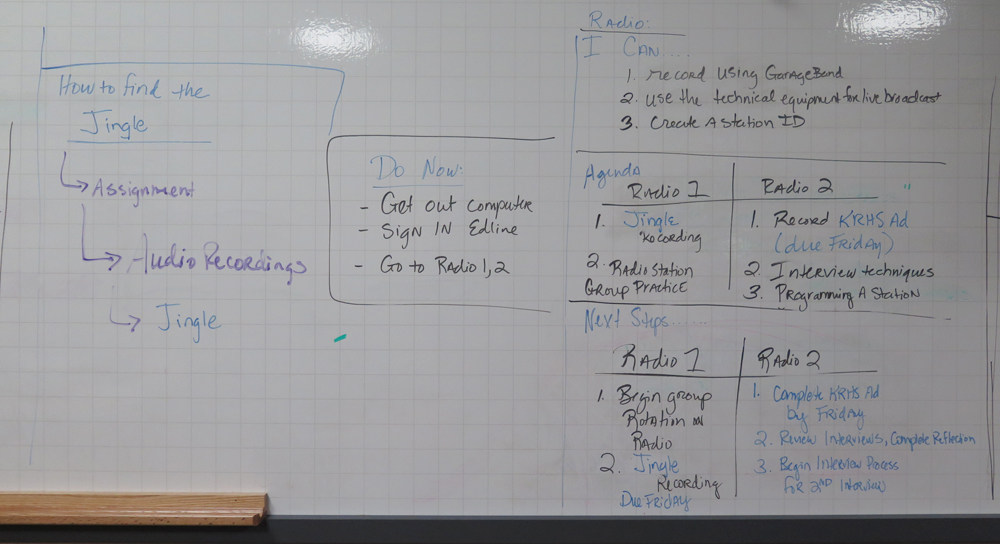 How to find the
Jingle
Assignment
Audio Recordings
Jingle
Do Now:
- Get out computer
- Sign IN Edline
- Go to Radio 1, 2
Radio:
I CAN....
1. record using GarageBand
2. use the technical equipment for live broadcast
3. Create A Station ID
Agenda
Radio 1
1. Jingle
Recording
2. Radio Station
Group Practice
Radio 2
1. Record KRHS Ad
(due Friday)
2. Interview techniques
3. Programming A Station
Next Steps......
Radio 1
1. Begin group
Rotation on
Radio
2. Jingle
Recording
Due Friday
Radio 2
1. Complete KRHS Ad
by Friday
2. Review Interviews, Complete Reflection
3. Begin Interview Process
for 2nd Interview